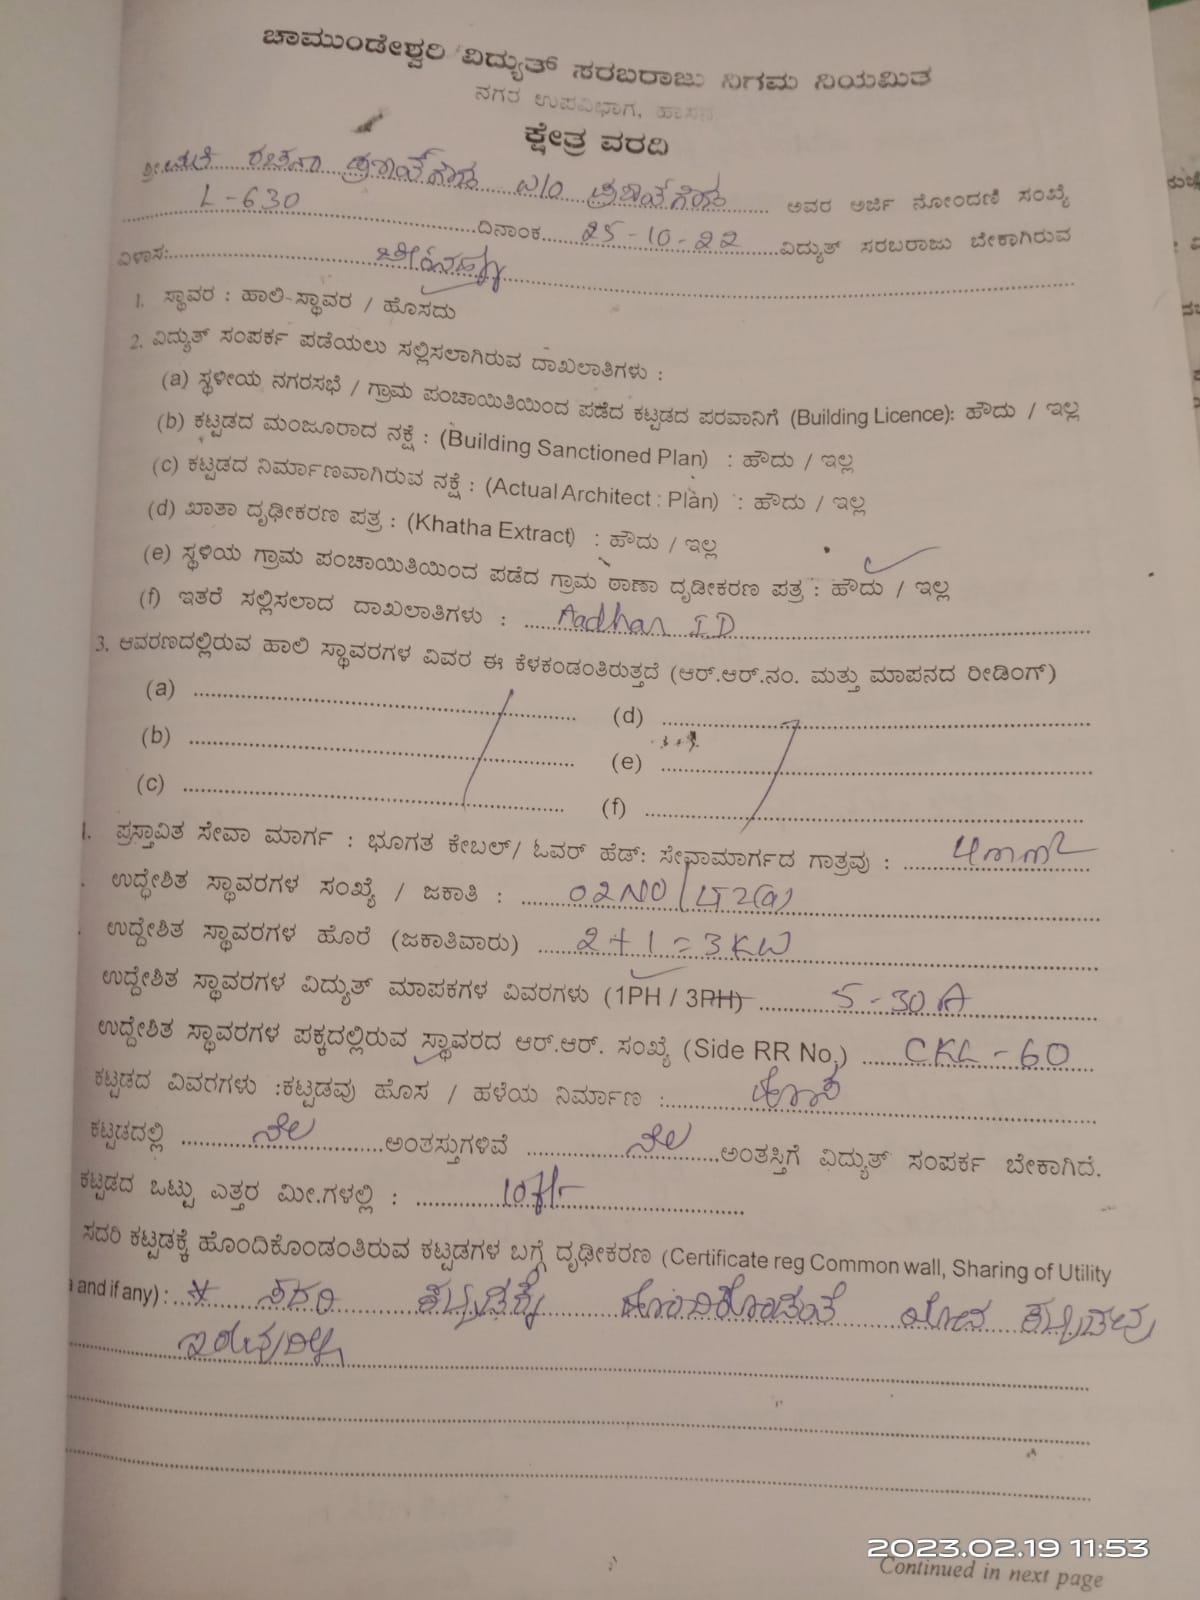 ಚಾಮುಂಡೇಶ್ವರಿ ವಿದ್ಯುತ್ ಸರಬರಾಜು ನಿಗಮ ನಿಯಮಿತ
ನಗರ ಉಪವಿಭಾಗ, ಹಾಸನ
ಕ್ಷೇತ್ರ ವರದಿ
ಶ್ರೀಮತಿ ರಚನಾ ............ ಅವರ ಅರ್ಜಿ ನೋಂದಣಿ ಸಂಖ್ಯೆ
L-630 ......ದಿನಾಂಕ...... 25-10-22 ......ವಿದ್ಯುತ್ ಸರಬರಾಜು ಬೇಕಾಗಿರುವ
ವಿಳಾಸ:............
1. ಸ್ಥಾವರ : ಹಾಲಿ-ಸ್ಥಾವರ / ಹೊಸದು
2. ವಿದ್ಯುತ್ ಸಂಪರ್ಕ ಪಡೆಯಲು ಸಲ್ಲಿಸಲಾಗಿರುವ ದಾಖಲಾತಿಗಳು :
(a) ಸ್ಥಳೀಯ ನಗರಸಭೆ / ಗ್ರಾಮ ಪಂಚಾಯಿತಿಯಿಂದ ಪಡೆದ ಕಟ್ಟಡದ ಪರವಾನಿಗೆ (Building Licence): ಹೌದು / ಇಲ್ಲ
(b) ಕಟ್ಟಡದ ಮಂಜೂರಾದ ನಕ್ಷೆ : (Building Sanctioned Plan) : ಹೌದು / ಇಲ್ಲ
(c) ಕಟ್ಟಡದ ನಿರ್ಮಾಣವಾಗಿರುವ ನಕ್ಷೆ : (Actual Architect : Plan) : ಹೌದು / ಇಲ್ಲ
(d) ಖಾತಾ ದೃಢೀಕರಣ ಪತ್ರ : (Khatha Extract) : ಹೌದು / ಇಲ್ಲ
(e) ಸ್ಥಳಿಯ ಗ್ರಾಮ ಪಂಚಾಯಿತಿಯಿಂದ ಪಡೆದ ಗ್ರಾಮ ಠಾಣಾ ದೃಡೀಕರಣ ಪತ್ರ : ಹೌದು / ಇಲ್ಲ
(f) ಇತರೆ ಸಲ್ಲಿಸಲಾದ ದಾಖಲಾತಿಗಳು : ...... Aadhar ID ......
3. ಆವರಣದಲ್ಲಿರುವ ಹಾಲಿ ಸ್ಥಾವರಗಳ ವಿವರ ಈ ಕೆಳಕಂಡಂತಿರುತ್ತದೆ (ಆರ್.ಆರ್.ನಂ. ಮತ್ತು ಮಾಪನದ ರೀಡಿಂಗ್)
(a) ............ (d) ............
(b) ............ (e) ............
(c) ............ (f) ............
ಪ್ರಸ್ತಾವಿತ ಸೇವಾ ಮಾರ್ಗ : ಭೂಗತ ಕೇಬಲ್/ ಓವರ್ ಹೆಡ್: ಸೇವಾಮಾರ್ಗದ ಗಾತ್ರವು : ...... 4mm²
ಉದ್ಧೇಶಿತ ಸ್ಥಾವರಗಳ ಸಂಖ್ಯೆ / ಜಕಾತಿ : ...... 02NO / LT2(a)
ಉದ್ದೇಶಿತ ಸ್ಥಾವರಗಳ ಹೊರೆ (ಜಕಾತಿವಾರು) ...... 2+1=3KW
ಉದ್ದೇಶಿತ ಸ್ಥಾವರಗಳ ವಿದ್ಯುತ್ ಮಾಪಕಗಳ ವಿವರಗಳು (1PH / 3PH) ...... 5-30A
ಉದ್ದೇಶಿತ ಸ್ಥಾವರಗಳ ಪಕ್ಕದಲ್ಲಿರುವ ಸ್ಥಾವರದ ಆರ್.ಆರ್. ಸಂಖ್ಯೆ (Side RR No.) ...... CKL-60
ಕಟ್ಟಡದ ವಿವರಗಳು :ಕಟ್ಟಡವು ಹೊಸ / ಹಳೆಯ ನಿರ್ಮಾಣ :...... ಹೊಸ
ಕಟ್ಟಡದಲ್ಲಿ ...... ನೆಲ ......ಅಂತಸ್ತುಗಳಿವೆ ...... ನೆಲ ......ಅಂತಸ್ತಿಗೆ ವಿದ್ಯುತ್ ಸಂಪರ್ಕ ಬೇಕಾಗಿದೆ.
ಕಟ್ಟಡದ ಒಟ್ಟು ಎತ್ತರ ಮೀ.ಗಳಲ್ಲಿ : ...... 10ft
ಸದರಿ ಕಟ್ಟಡಕ್ಕೆ ಹೊಂದಿಕೊಂಡಂತಿರುವ ಕಟ್ಟಡಗಳ ಬಗ್ಗೆ ದೃಢೀಕರಣ (Certificate reg Common wall, Sharing of Utility
and if any) : * ಸದರಿ ಕಟ್ಟಡಕ್ಕೆ ಹೊಂದಿಕೊಂಡಂತೆ ಯಾವ ಕಟ್ಟಡವು
ಇರುವುದಿಲ್ಲ
2023.02.19 11:53
Continued in next page